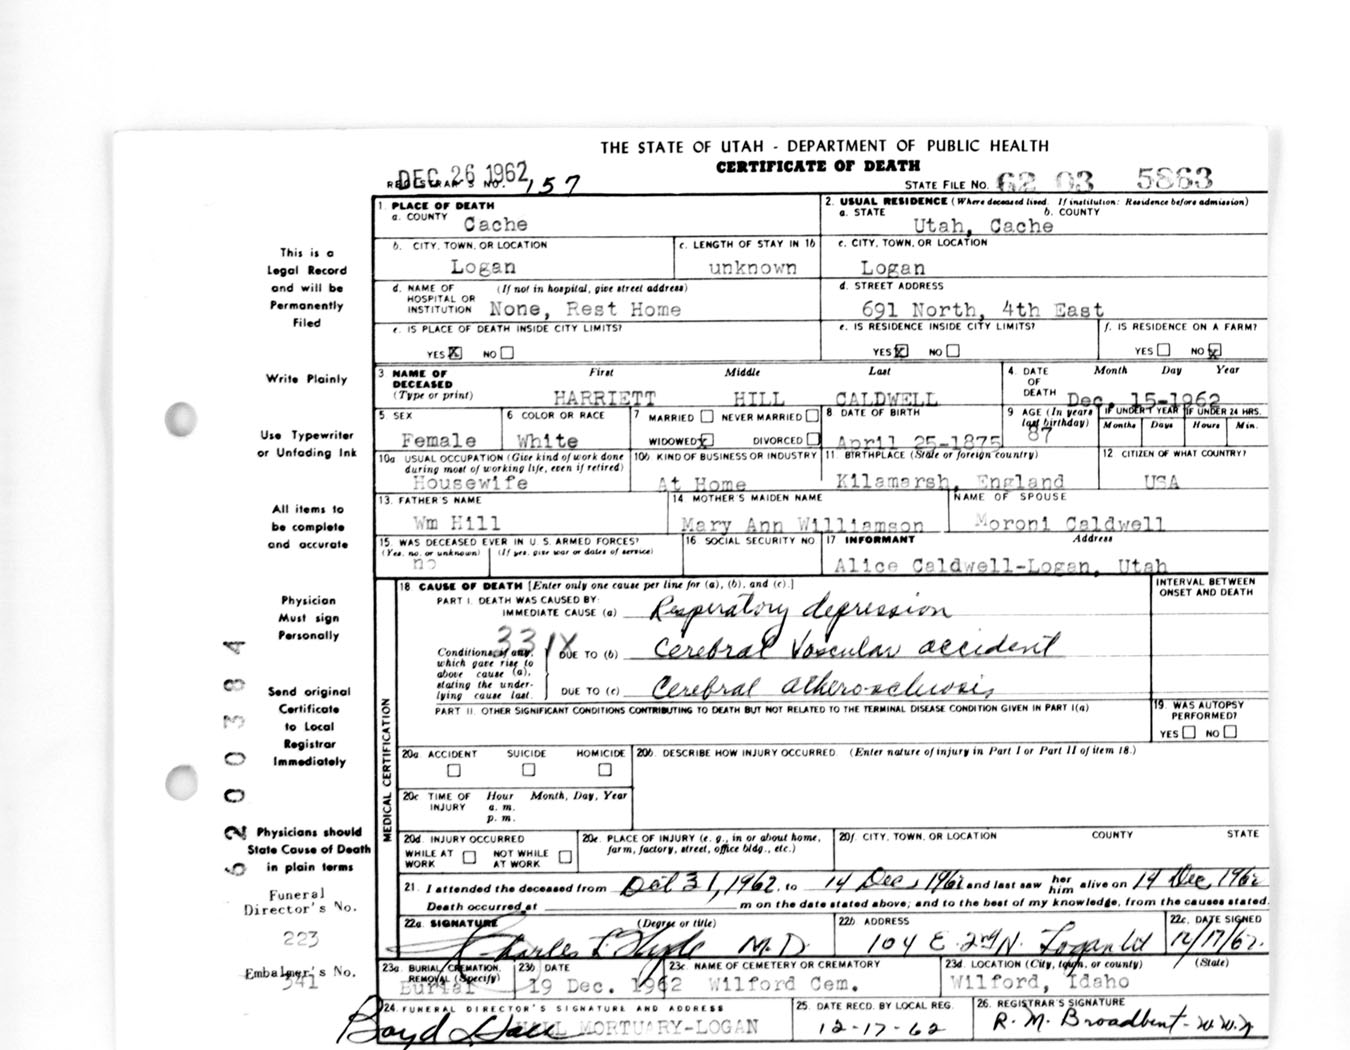 THE STATE OF UTAH - DEPARTMENT OF PUBLIC HEALTH
CERTIFICATE OF DEATH
DEC 26 1962
REGISTRAR'S NO. 157
STATE FILE NO. 62 03 5863
This is a
Legal Record
and will be
Permanently
Filed
Write Plainly
Use Typewriter
or Unfading Ink
All items to
be complete
and accurate
Physician
Must sign
Personally
Send original
Certificate
to Local
Registrar
Immediately
Physicians should
State Cause of Death
in plain terms
Funeral
Director's No.
223
Embalmer's No.
541
1. PLACE OF DEATH
a. COUNTY Cache
2. USUAL RESIDENCE (Where deceased lived. If institution: Residence before admission)
a. STATE b. COUNTY
Utah, Cache
b. CITY, TOWN, OR LOCATION
Logan
c. LENGTH OF STAY IN 1b
unknown
c. CITY, TOWN, OR LOCATION
Logan
d. NAME OF HOSPITAL OR INSTITUTION (If not in hospital, give street address)
None, Rest Home
d. STREET ADDRESS
691 North, 4th East
e. IS PLACE OF DEATH INSIDE CITY LIMITS?
YES X NO
e. IS RESIDENCE INSIDE CITY LIMITS?
YES X NO
f. IS RESIDENCE ON A FARM?
YES NO X
3 NAME OF DECEASED (Type or print) First Middle Last
HARRIETT HILL CALDWELL
4. DATE OF DEATH Month Day Year
Dec. 15-1962
5. SEX
Female
6 COLOR OR RACE
White
7 MARRIED NEVER MARRIED
WIDOWED X DIVORCED
8 DATE OF BIRTH
April 25-1875
9 AGE (In years last birthday)
87
IF UNDER 1 YEAR
Months Days
IF UNDER 24 HRS.
Hours Min.
10a USUAL OCCUPATION (Give kind of work done during most of working life, even if retired)
Housewife
10b KIND OF BUSINESS OR INDUSTRY
At Home
11 BIRTHPLACE (State or foreign country)
Kilamarsh, England
12 CITIZEN OF WHAT COUNTRY?
USA
13. FATHER'S NAME
Wm Hill
14 MOTHER'S MAIDEN NAME
Mary Ann Williamson
NAME OF SPOUSE
Moroni Caldwell
15. WAS DECEASED EVER IN U.S. ARMED FORCES?
(Yes, no, or unknown) (If yes, give war or dates of service)
no
16 SOCIAL SECURITY NO
17 INFORMANT Address
Alice Caldwell-Logan, Utah
MEDICAL CERTIFICATION
18 CAUSE OF DEATH [Enter only one cause per line for (a), (b), and (c).]
INTERVAL BETWEEN ONSET AND DEATH
PART I. DEATH WAS CAUSED BY:
IMMEDIATE CAUSE (a) Respiratory depression
331X
Conditions, if any, which gave rise to above cause (a), stating the underlying cause last.
DUE TO (b) Cerebral Vascular accident
DUE TO (c) Cerebral atherosclerosis
PART II. OTHER SIGNIFICANT CONDITIONS CONTRIBUTING TO DEATH BUT NOT RELATED TO THE TERMINAL DISEASE CONDITION GIVEN IN PART I(a)
19. WAS AUTOPSY PERFORMED?
YES NO
20a ACCIDENT SUICIDE HOMICIDE
20b. DESCRIBE HOW INJURY OCCURRED. (Enter nature of injury in Part I or Part II of item 18.)
20c TIME OF INJURY Hour Month, Day, Year
a. m.
p. m.
20d INJURY OCCURRED
WHILE AT WORK NOT WHILE AT WORK
20e. PLACE OF INJURY (e. g., in or about home, farm, factory, street, office bldg., etc.)
20f. CITY, TOWN, OR LOCATION COUNTY STATE
21. I attended the deceased from Oct 31, 1962 to 14 Dec, 1962 and last saw her him alive on 14 Dec, 1962
Death occurred at m on the date stated above; and to the best of my knowledge, from the causes stated.
22a. SIGNATURE (Degree or title)
Charles L. Clyde M.D.
22b ADDRESS
104 E. 2nd N. Logan Ut
22c. DATE SIGNED
12/17/62.
23a. BURIAL, CREMATION, REMOVAL (Specify)
Burial
23b DATE
19 Dec. 1962
23c NAME OF CEMETERY OR CREMATORY
Wilford Cem.
23d. LOCATION (City, town, or county) (State)
Wilford, Idaho
24. FUNERAL DIRECTOR'S SIGNATURE AND ADDRESS
Boyd L Hall HALL MORTUARY-LOGAN
25. DATE RECD. BY LOCAL REG.
12-17-62
26. REGISTRAR'S SIGNATURE
R. M. Broadbent
5200384